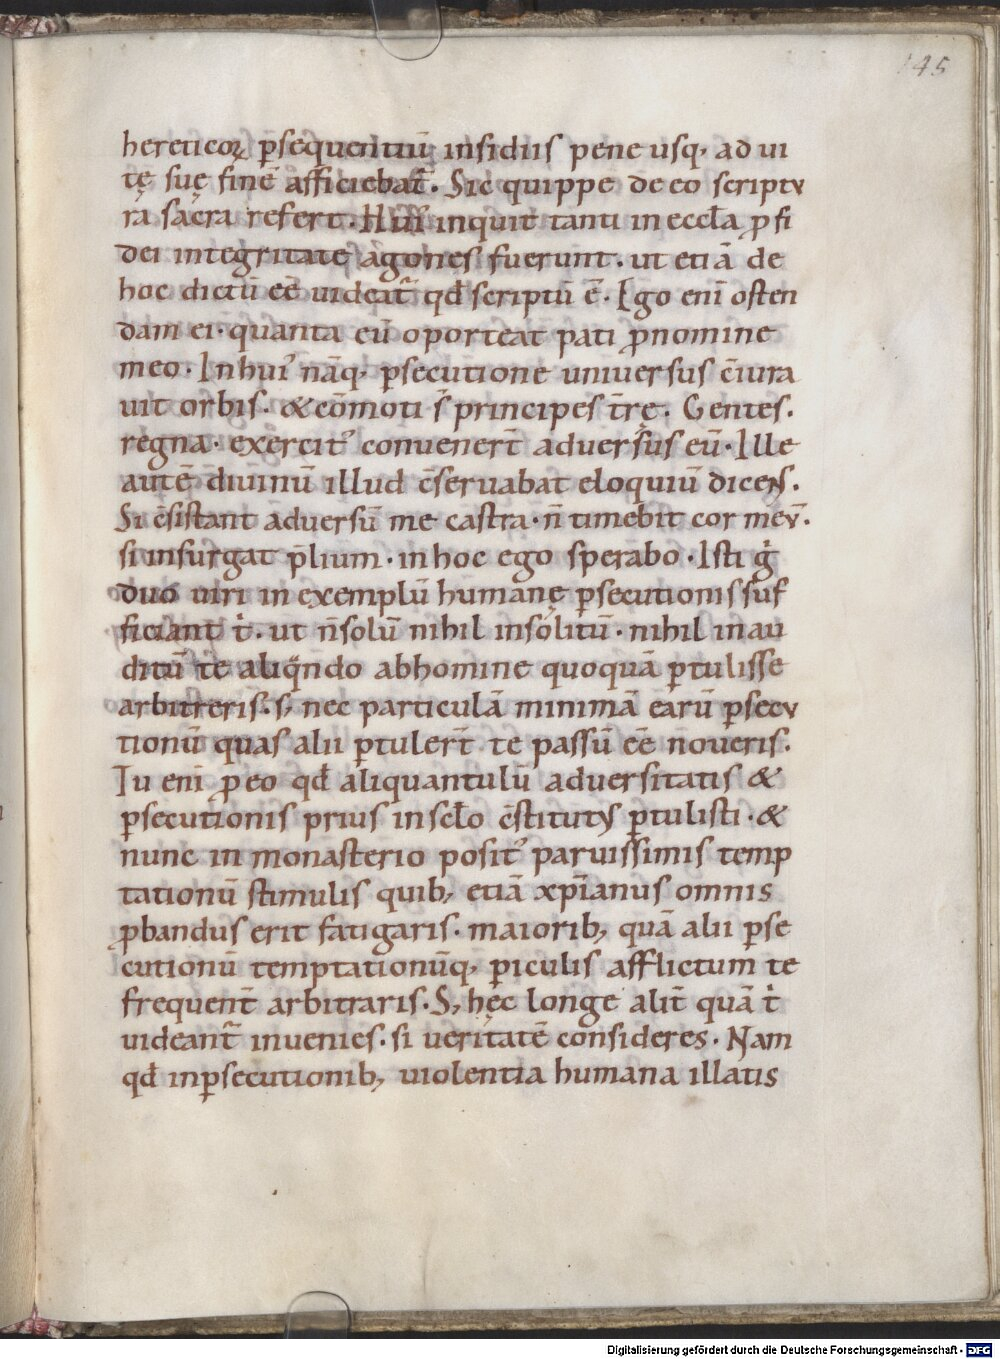 145
hereticoꝝ ꝑsequentiū insidiis pene usq; ad ui
tę suę finē afficiebat᷑. Sic quippe de eo scriptu
ra sacra refert. Hui᷒ inquit tanti in eccła ꝓ fi
dei integritate agones fuerunt. ut etiā de
hoc dictū eē uideat᷑ qđ scriptū ē. Ego eni osten
dam ei. quanta eū oporteat pati ꝓ nomine
meo. In hui᷒ nāq; ꝑsecutione uniuersus c̄iura
uit orbis. & cōmoti s̄ principes t̄rę. Gentes.
regna. exercit᷒ conuenert̄ aduersus eū. Ille
autē diuinū illud c̄seruabat eloquiū dicens.
Si c̄sistant aduersū me castra. n̄ timebit cor meū.
si insurgat p̄lium. in hoc ego sperabo. Isti gͥ
duo uiri in exemplū humanę ꝑsecutionis suf
ficiant tͥ. ut n̄ solū nihil insolitū. nihil inau
ditū te aliqͣndo ab homine quoquā ꝑtulisse
arbitreris. s; nec particulā minimā earū ꝑsecu
tionū quas alii ꝑtulert̄ te passū eē noueris.
Tu eni ꝓ eo qđ aliquantulū aduersitatis &
ꝑsecutionis prius in scło c̄stitutus ꝑtulisti. &
nunc in monasterio posit᷒ paruissimis temp
tationū stimulis quib; etiā xp̄ianus omnis
ꝓbandus erit fatigaris. maiorib; quā alii ꝑse
cutionū temptationūq; ꝑiculis afflictum te
frequent̄ arbitraris. S; hęc longe alit̄ quā tͥ
uideant᷑ inuenies. si ueritatē consideres. Nam
qđ in ꝑsecutionib; uiolentia humana illatis
Digitalisierung gefördert durch die Deutsche Forschungsgemeinschaft - DFG